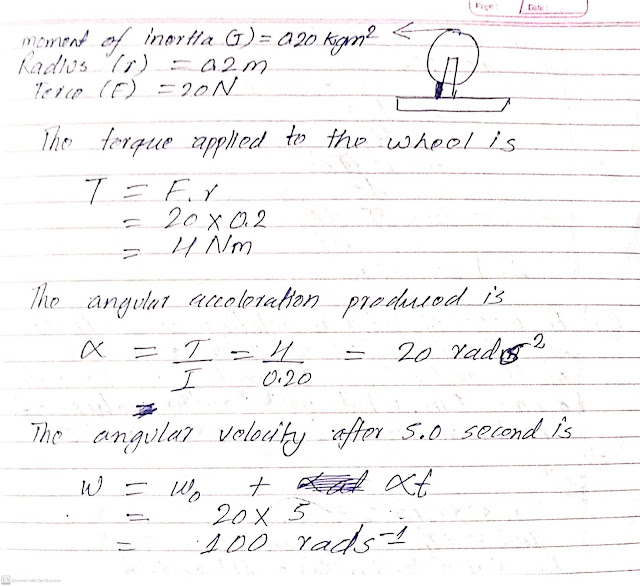 Page: Date:
moment of inertia (I) = 0.20 kgm²
Radius (r) = 0.2 m
Force (F) = 20 N
The torque applied to the wheel is
T = F.r
= 20 x 0.2
= 4 Nm
The angular acceleration produced is
α = T/I = 4/0.20 = 20 rads⁻²
The angular velocity after 5.0 second is
W = W₀ + αt
= 20 x 5
= 100 rads⁻¹
Scanned with CamScanner